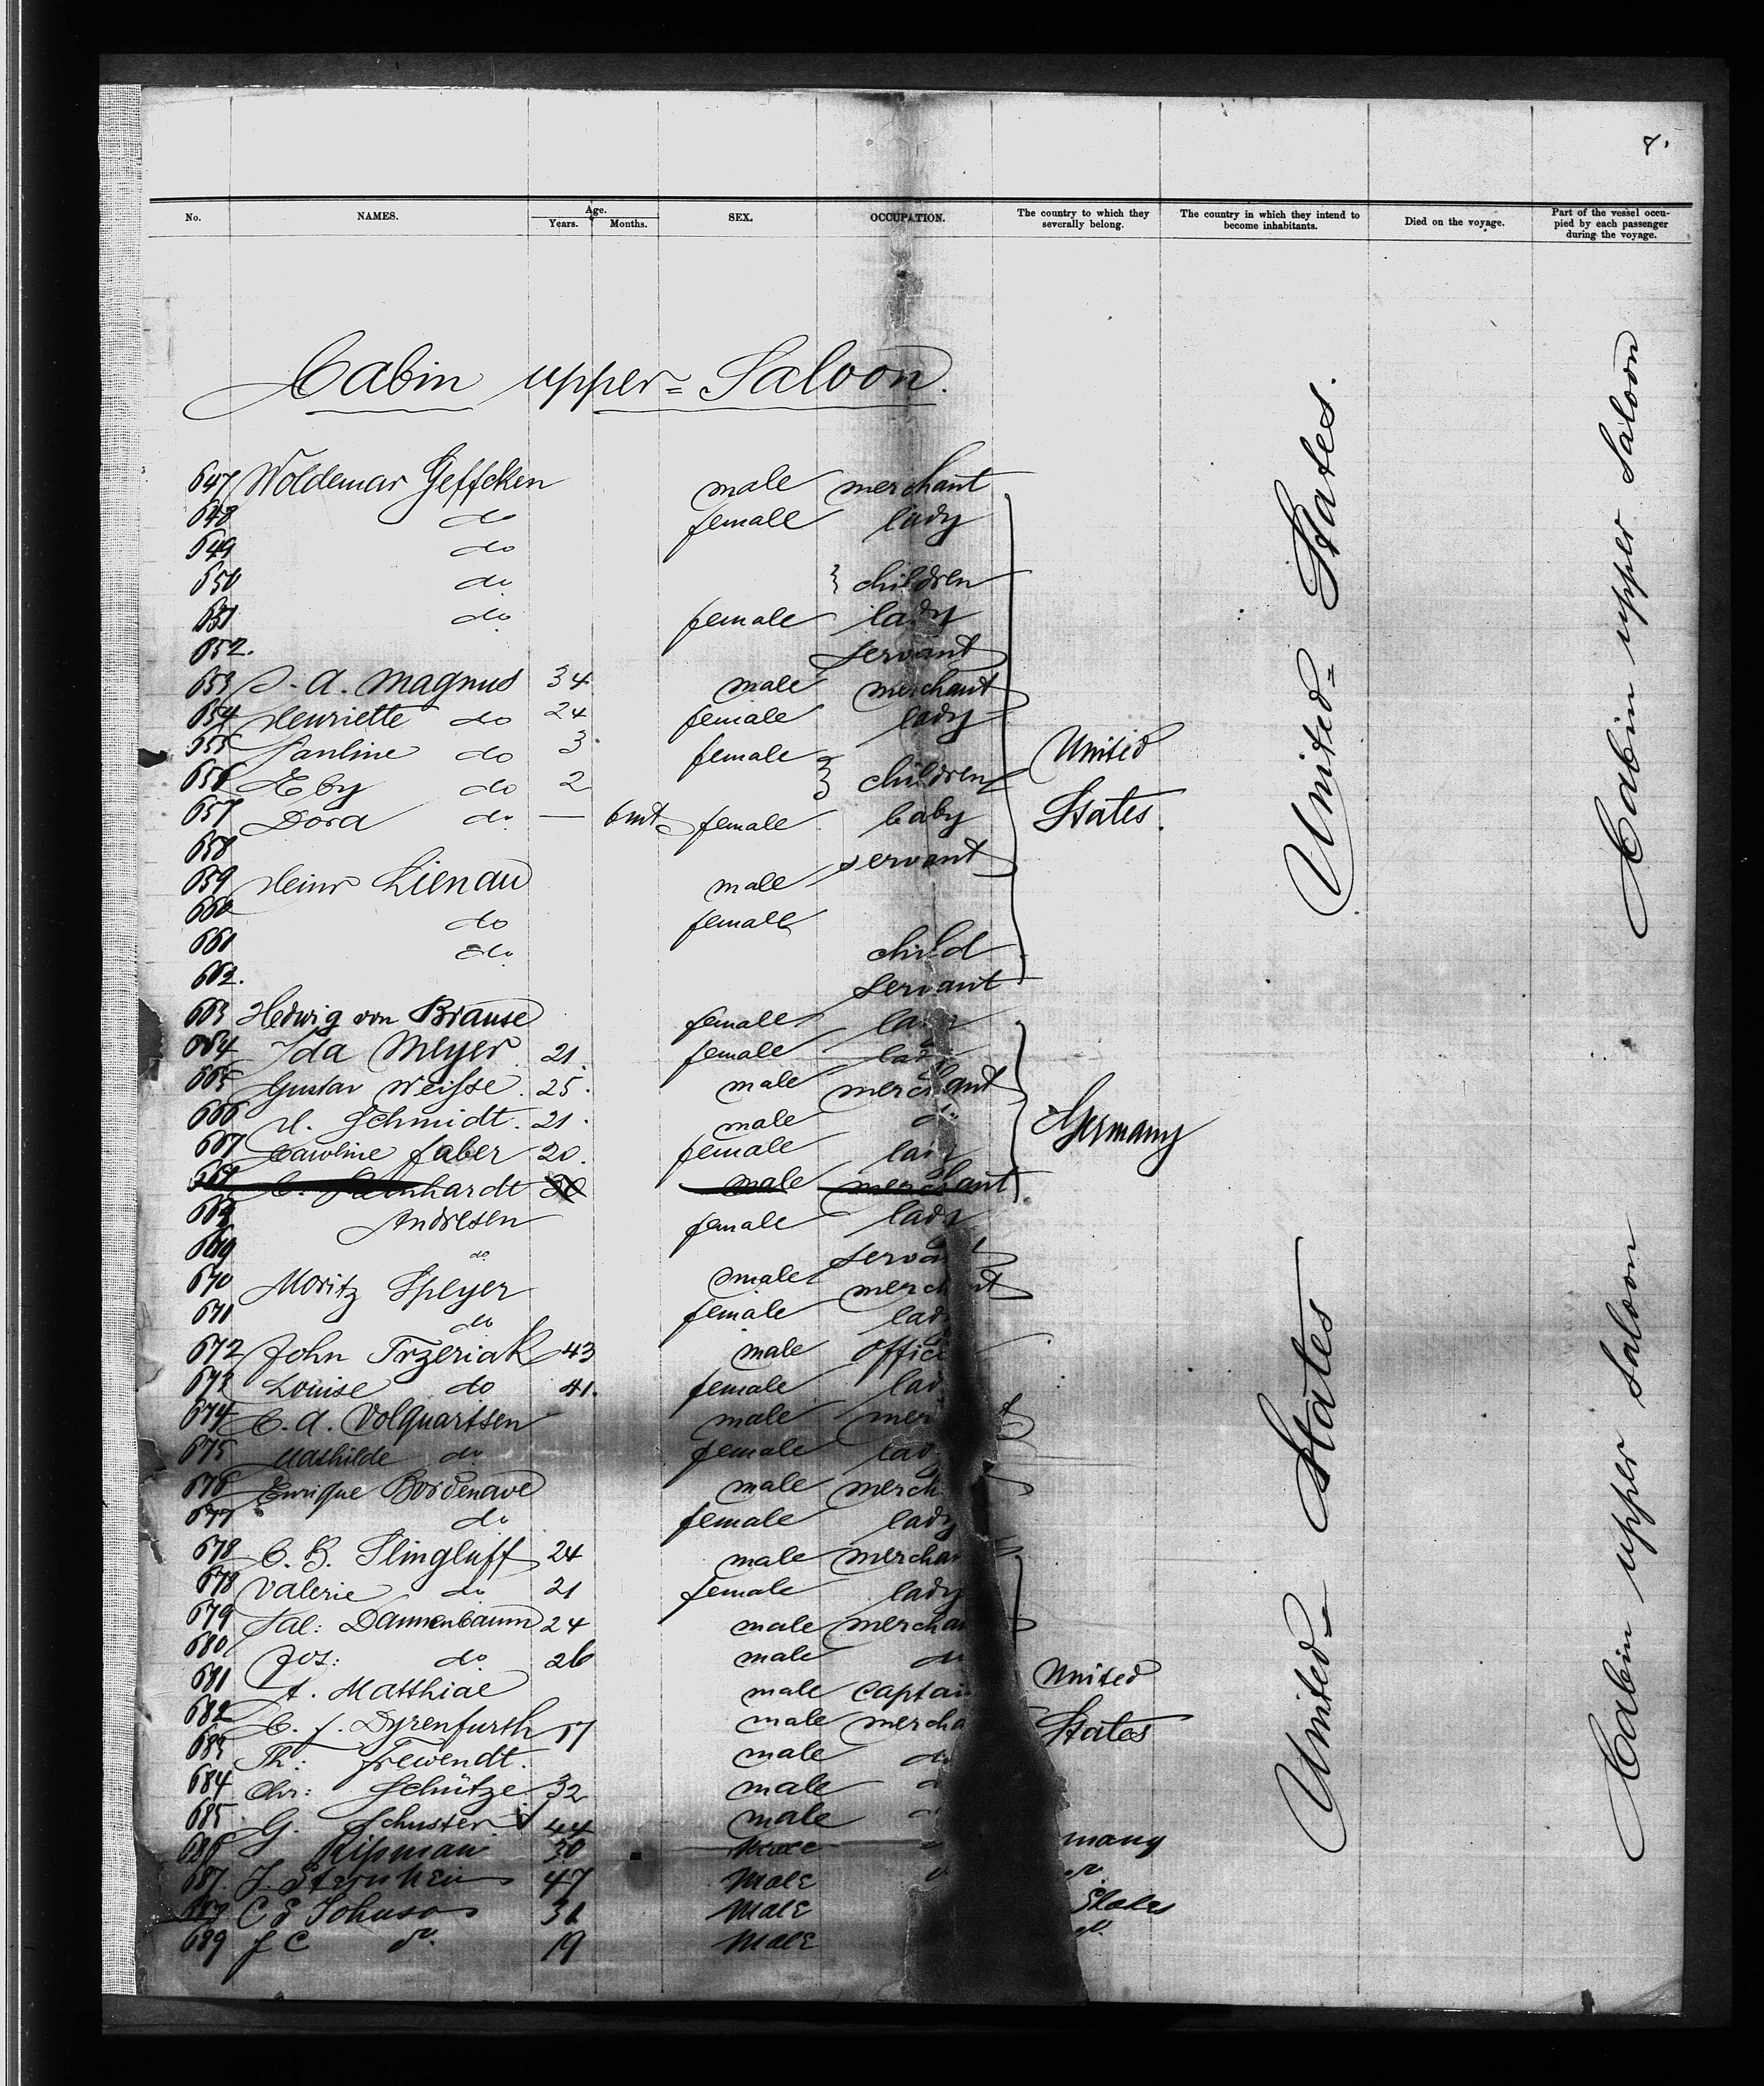 8.
No. NAMES. Age. Years. Months. SEX. OCCUPATION. The country to which they severally belong. The country in which they intend to become inhabitants. Died on the voyage. Part of the vessel occupied by each passenger during the voyage.
Cabin upper = Saloon.
647 Woldemar Geffcken male merchant
648 do female lady
649 do
650 do } children
651 do female lady
652. servant
653 A. Magnus 34 male merchant
654 Henriette do 24 female lady
655 Pauline do 3 female
656 do 2 } children United
657 Dora do — 6 mt. female baby States.
658 servant
659 Heinr Lienau male
660 do female
661 do child
662. servant
663 Hedwig von Brause female
664 Ida Meyer 21. female lady
665 Gustav Weisse. 25. male merchant
666 Schmidt. 21. male do Germany
667 Caroline Faber 20. female
male merchant
Andresen female lady
do servant
670 Moritz Speyer male merchant
671 do female
672 John Trzeriak 43 male
673 Louise do 41. female
674 C. A. Volquartsen male
675 Mathilde do female
676 Enrique Bordenave male
677 do female lady
678 C. B. Slingluff 24 male
678 Valerie do 21 female lady
679 Sal: Dannenbaum 24 male
680 Jos: do 26 male do
681 Matthiae male United
682 Dyrenfurth 17 male States
683 Th: Trewendt. male do
684 Chr: Schütze 32 male
685 G. Schuster 44 male
686 30 Male many
687. 47 Male
C E Johnson 31 Male States
689 J C do 19 Male
United = States.
United = States
Cabin upper Saloon
Cabin upper Saloon